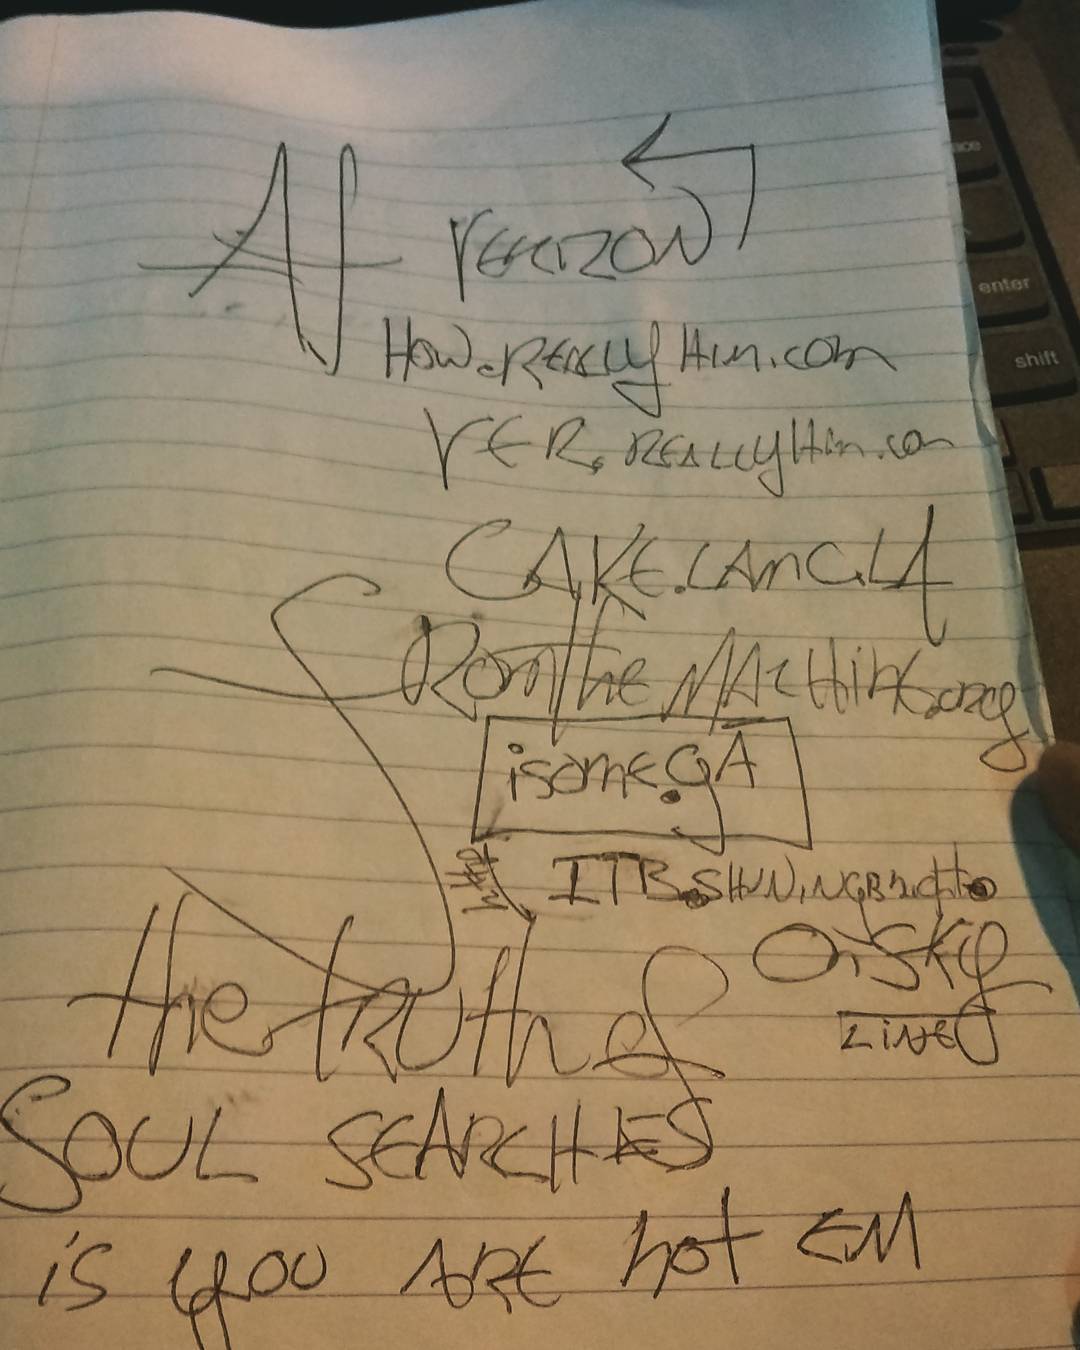 VERIZON
How.REALLY Him.com
VER.REALLYHim.com
CAKE.LAMC.LA
FROMTHE MACHINE.org
isome.GA
http
ITB.SHININGBright.
ON.SKY
LINE
the truth of
SOUL SEARCHES
is you ARE not EM
enter
shift